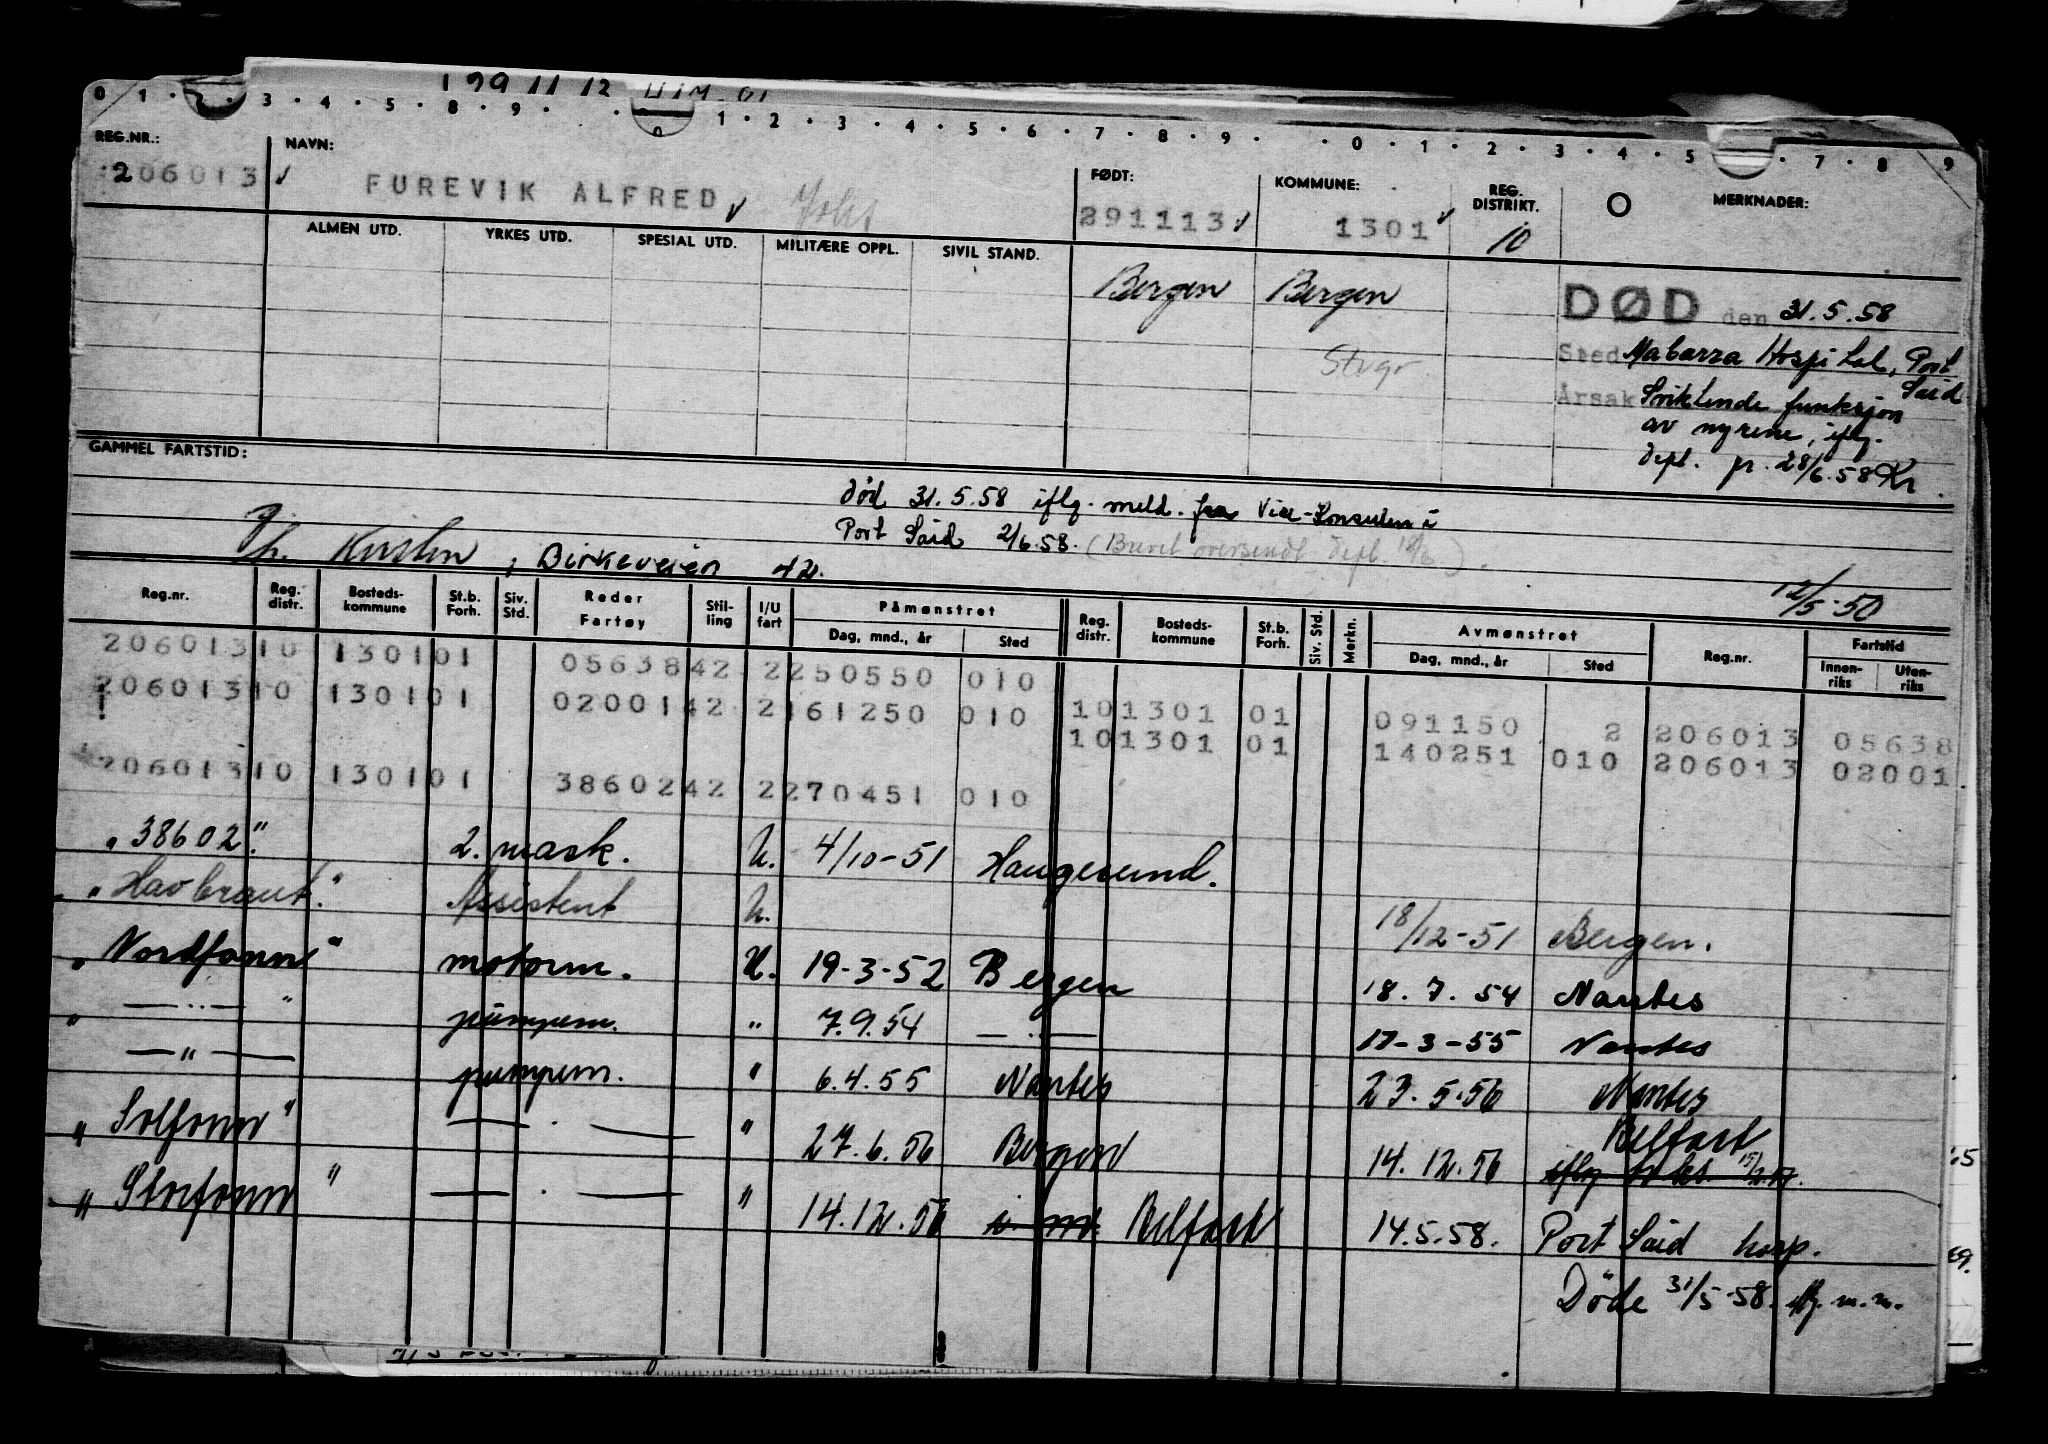 0 1 · 2 · 3 · 4 · 5 · 8 · 9 · · 0 1 · 2 · 3 · 4 · 5 · 6 · 7 · 8 · 9 · · 0 · 1 · 2 · 3 · 4 · 5 · 7 · 8 9
REG.NR.: NAVN: FØDT: KOMMUNE: REG. DISTRIKT. MERKNADER:
206013 FUREVIK ALFRED 291113 1301 10
ALMEN UTD. YRKES UTD. SPESIAL UTD. MILITÆRE OPPL. SIVIL STAND.
Bergen Bergen
DØD den 31.5.58
Stvgr.
Sted Mabarza Hospital, Port Said
Årsak Sviktende funksjon
av nyrene, iflg.
Dept. pr. 28/6.58 Kr
GAMMEL FARTSTID:
død 31.5.58 iflg. meld. fra Vise-Konsulen i
Port Said 2/6.58. (Brevet oversendt Dept.
Kirsten, Birkeveien 42.
12/5-50
Reg.nr. Reg. distr. Bosteds-kommune St.b. Forh. Siv. Std. Reder Fartøy Stil-ling I/U fart Påmønstret Reg. distr. Bosteds-kommune St.b. Forh. Siv. Std. Merkn. Avmønstret Reg.nr. Fartstid
Dag, mnd., år Sted Dag, mnd., år Sted Innen-riks Uten-riks
20601310 130101 0563842 2250550 010
20601310 130101 0200142 2161250 010 101301 01 091150 2 206013 05638
101301 01 140251 010 206013 02001
20601310 130101 3860242 2270451 010
"38602." 2. mask. U. 4/10-51 Haugesund.
"Havbraut." Assistent U. 18/12-51 Bergen.
"Nordfonn" motorm. U. 19-3-52 Bergen 18.7.54 Nantes
" — .. — " pumpem. " 7.9.54 — . — 17-3-55 Nantes
— " — pumpem. " 6.4.55 Nantes 23.5.56 Nantes
"Solfonn" — . — " 27.6.56 Bergen 14.12.56 Belfast
"Storfonn" — . — " 14.12.56 Belfast 14.5.58. Port Said hosp.
Døde 31/5-58. iflg. m.m.